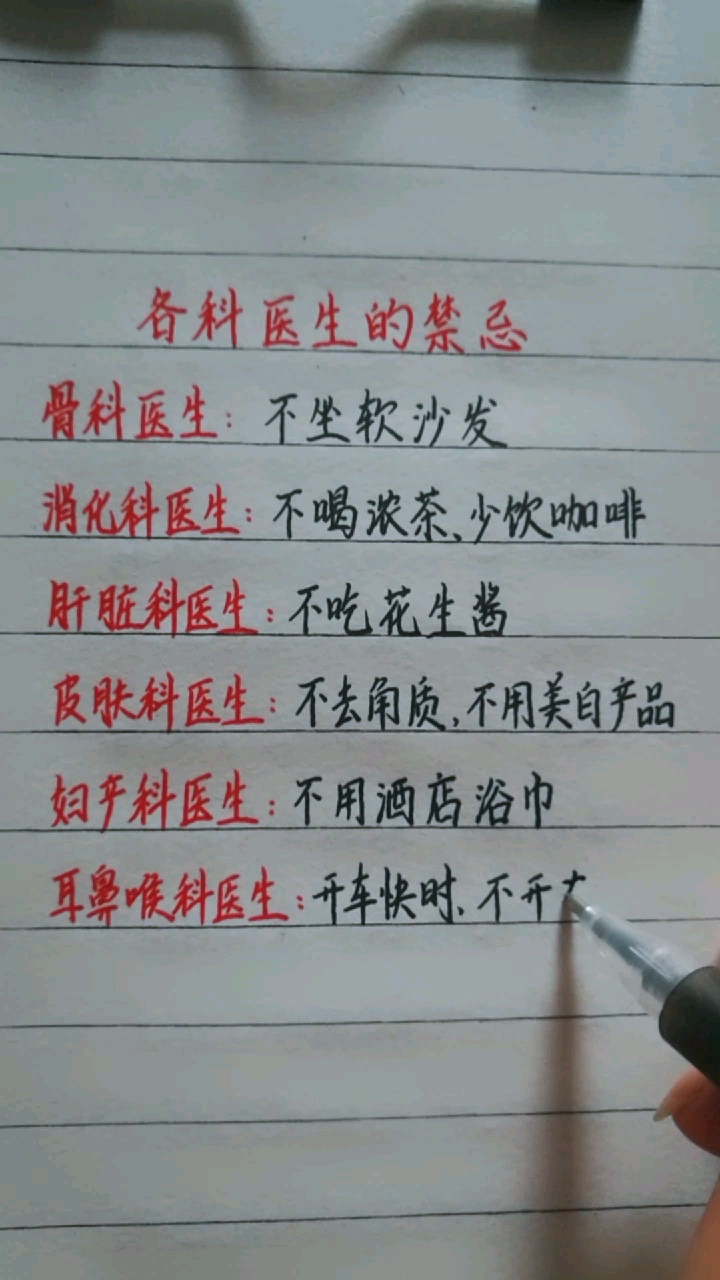 各科医生的禁忌
骨科医生：不坐软沙发
消化科医生：不喝浓茶、少饮咖啡
肝脏科医生：不吃花生酱
皮肤科医生：不去角质，不用美白产品
妇产科医生：不用酒店浴巾
耳鼻喉科医生：开车快时、不开